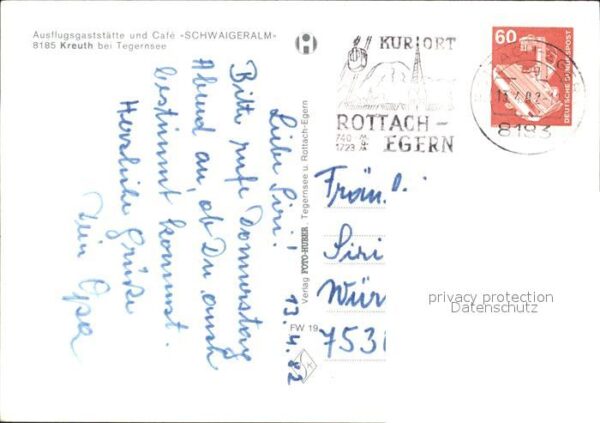 Ausflugsgaststätte und Café «SCHWAIGERALM»
8185 Kreuth bei Tegernsee
Liebe Siri!
Bitte rufe Donnerstag
Abend an, ob Du auch
bestimmt kommst.
Herzliche Grüße
Dein Opa
13.4.82
Verlag FOTO-HUBER Tegernsee u. Rottach-Egern
FW 19
KURORT
ROTTACH-
EGERN
740 -
1723 m
60
DEUTSCHE BUNDESPOST
8183
Siri
Wür
7531
privacy protection
Datenschutz